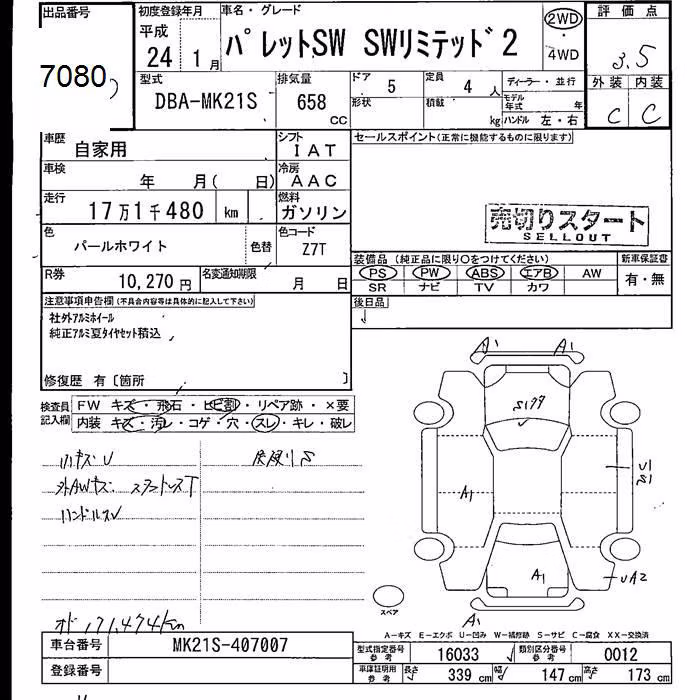 出品番号
7080
初度登録年月
平成
24 1 月
車名・グレード
パレットSW SWリミテッド2
2WD
・
4WD
評価点
3.5
外装 内装
C C
型式
DBA-MK21S
排気量
658
CC
ドア 5
形状
定員 4 人
積載 kg
ディーラー・並行
モデル年式 年
ハンドル 左・右
車歴
自家用
シフト
IAT
セールスポイント(正常に機能するものに限ります)
車検
年 月( 日)
冷房
AAC
走行
17万1千480 km
燃料
ガソリン
売切りスタート
SELLOUT
色
パールホワイト
色替
色コード
Z7T
装備品(純正品に限り○をつけてください)
新車保証書
PS PW ABS エアB AW
SR ナビ TV カワ
有・無
R券
10,270円
名変通知期限
月 日
後日品
注意事項申告欄(不具合内容等は具体的に記入して下さい)
社外アルミホイール
純正アルミ夏タイヤセット積込
修復歴 有〔箇所 〕
検査員
記入欄
FW キズ・飛石・ヒビ割・リペア跡・×要
内装 キズ・汚レ・コゲ・穴・スレ・キレ・破レ
外AWキズ
ハンドルスレ
171,474km
A1 A1
A1
U1
S1
A1
UA2
A1
スペア
A−キズ E−エクボ U−凹み W−補修跡 S−サビ C−腐食 XX−交換済
車台番号
MK21S-407007
型式指定番号
参考
16033
類別区分番号
参考
0012
登録番号
車庫証明用
参考
長さ 339 cm
幅 147 cm
高さ 173 cm